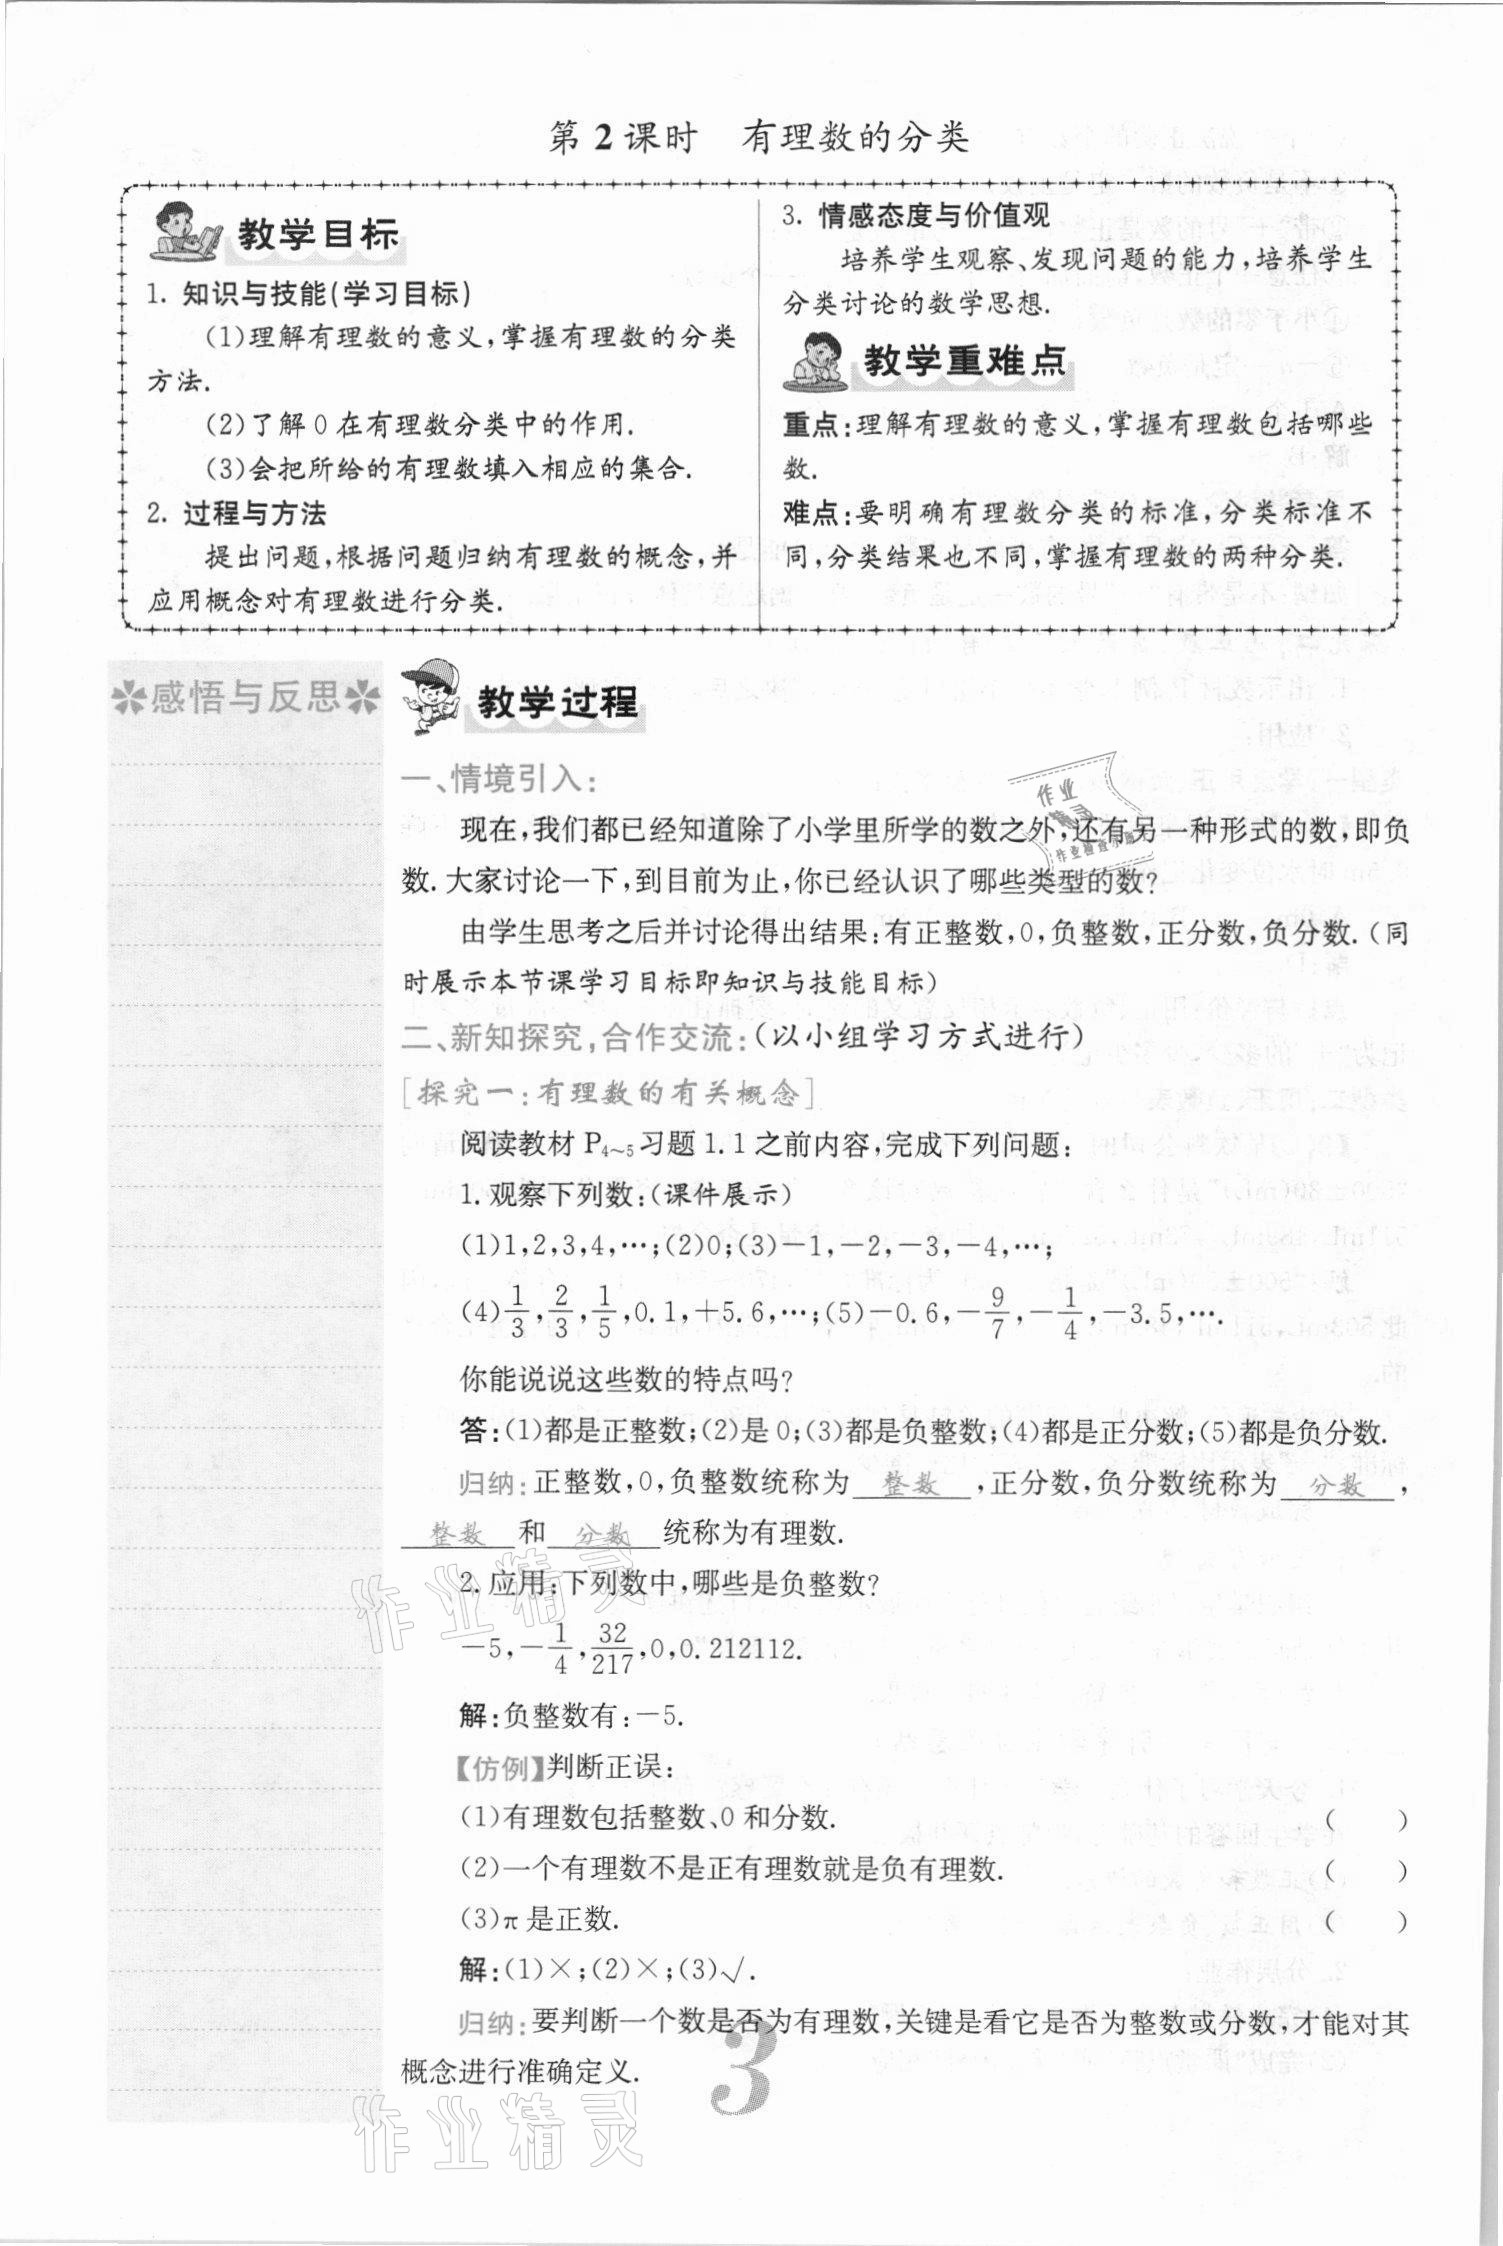 第2课时 有理数的分类
教学目标
1. 知识与技能(学习目标)
(1)理解有理数的意义,掌握有理数的分类
方法.
(2)了解0在有理数分类中的作用.
(3)会把所给的有理数填入相应的集合.
2. 过程与方法
提出问题,根据问题归纳有理数的概念,并
应用概念对有理数进行分类.
3. 情感态度与价值观
培养学生观察、发现问题的能力,培养学生
分类讨论的数学思想.
教学重难点
重点:理解有理数的意义,掌握有理数包括哪些
数.
难点:要明确有理数分类的标准,分类标准不
同,分类结果也不同,掌握有理数的两种分类.
感悟与反思
教学过程
一、情境引入:
现在,我们都已经知道除了小学里所学的数之外,还有另一种形式的数,即负
数.大家讨论一下,到目前为止,你已经认识了哪些类型的数?
由学生思考之后并讨论得出结果:有正整数,0,负整数,正分数,负分数.(同
时展示本节课学习目标即知识与技能目标)
二、新知探究,合作交流:(以小组学习方式进行)
[探究一:有理数的有关概念]
阅读教材 P4~5 习题 1.1 之前内容,完成下列问题:
1.观察下列数:(课件展示)
(1)1,2,3,4,…;(2)0;(3)-1,-2,-3,-4,…;
(4)1/3,2/3,1/5,0.1,+5.6,…;(5)-0.6,-9/7,-1/4,-3.5,….
你能说说这些数的特点吗?
答:(1)都是正整数;(2)是0;(3)都是负整数;(4)都是正分数;(5)都是负分数.
归纳:正整数,0,负整数统称为 整数 ,正分数,负分数统称为 分数 ,
整数 和 分数 统称为有理数.
2.应用:下列数中,哪些是负整数?
-5,-1/4,32/217,0,0.212112.
解:负整数有:-5.
【仿例】判断正误:
(1)有理数包括整数、0和分数. ( )
(2)一个有理数不是正有理数就是负有理数. ( )
(3)π是正数. ( )
解:(1)×;(2)×;(3)√.
归纳:要判断一个数是否为有理数,关键是看它是否为整数或分数,才能对其
概念进行准确定义.
3
作业精灵
作业精灵
作业
精灵